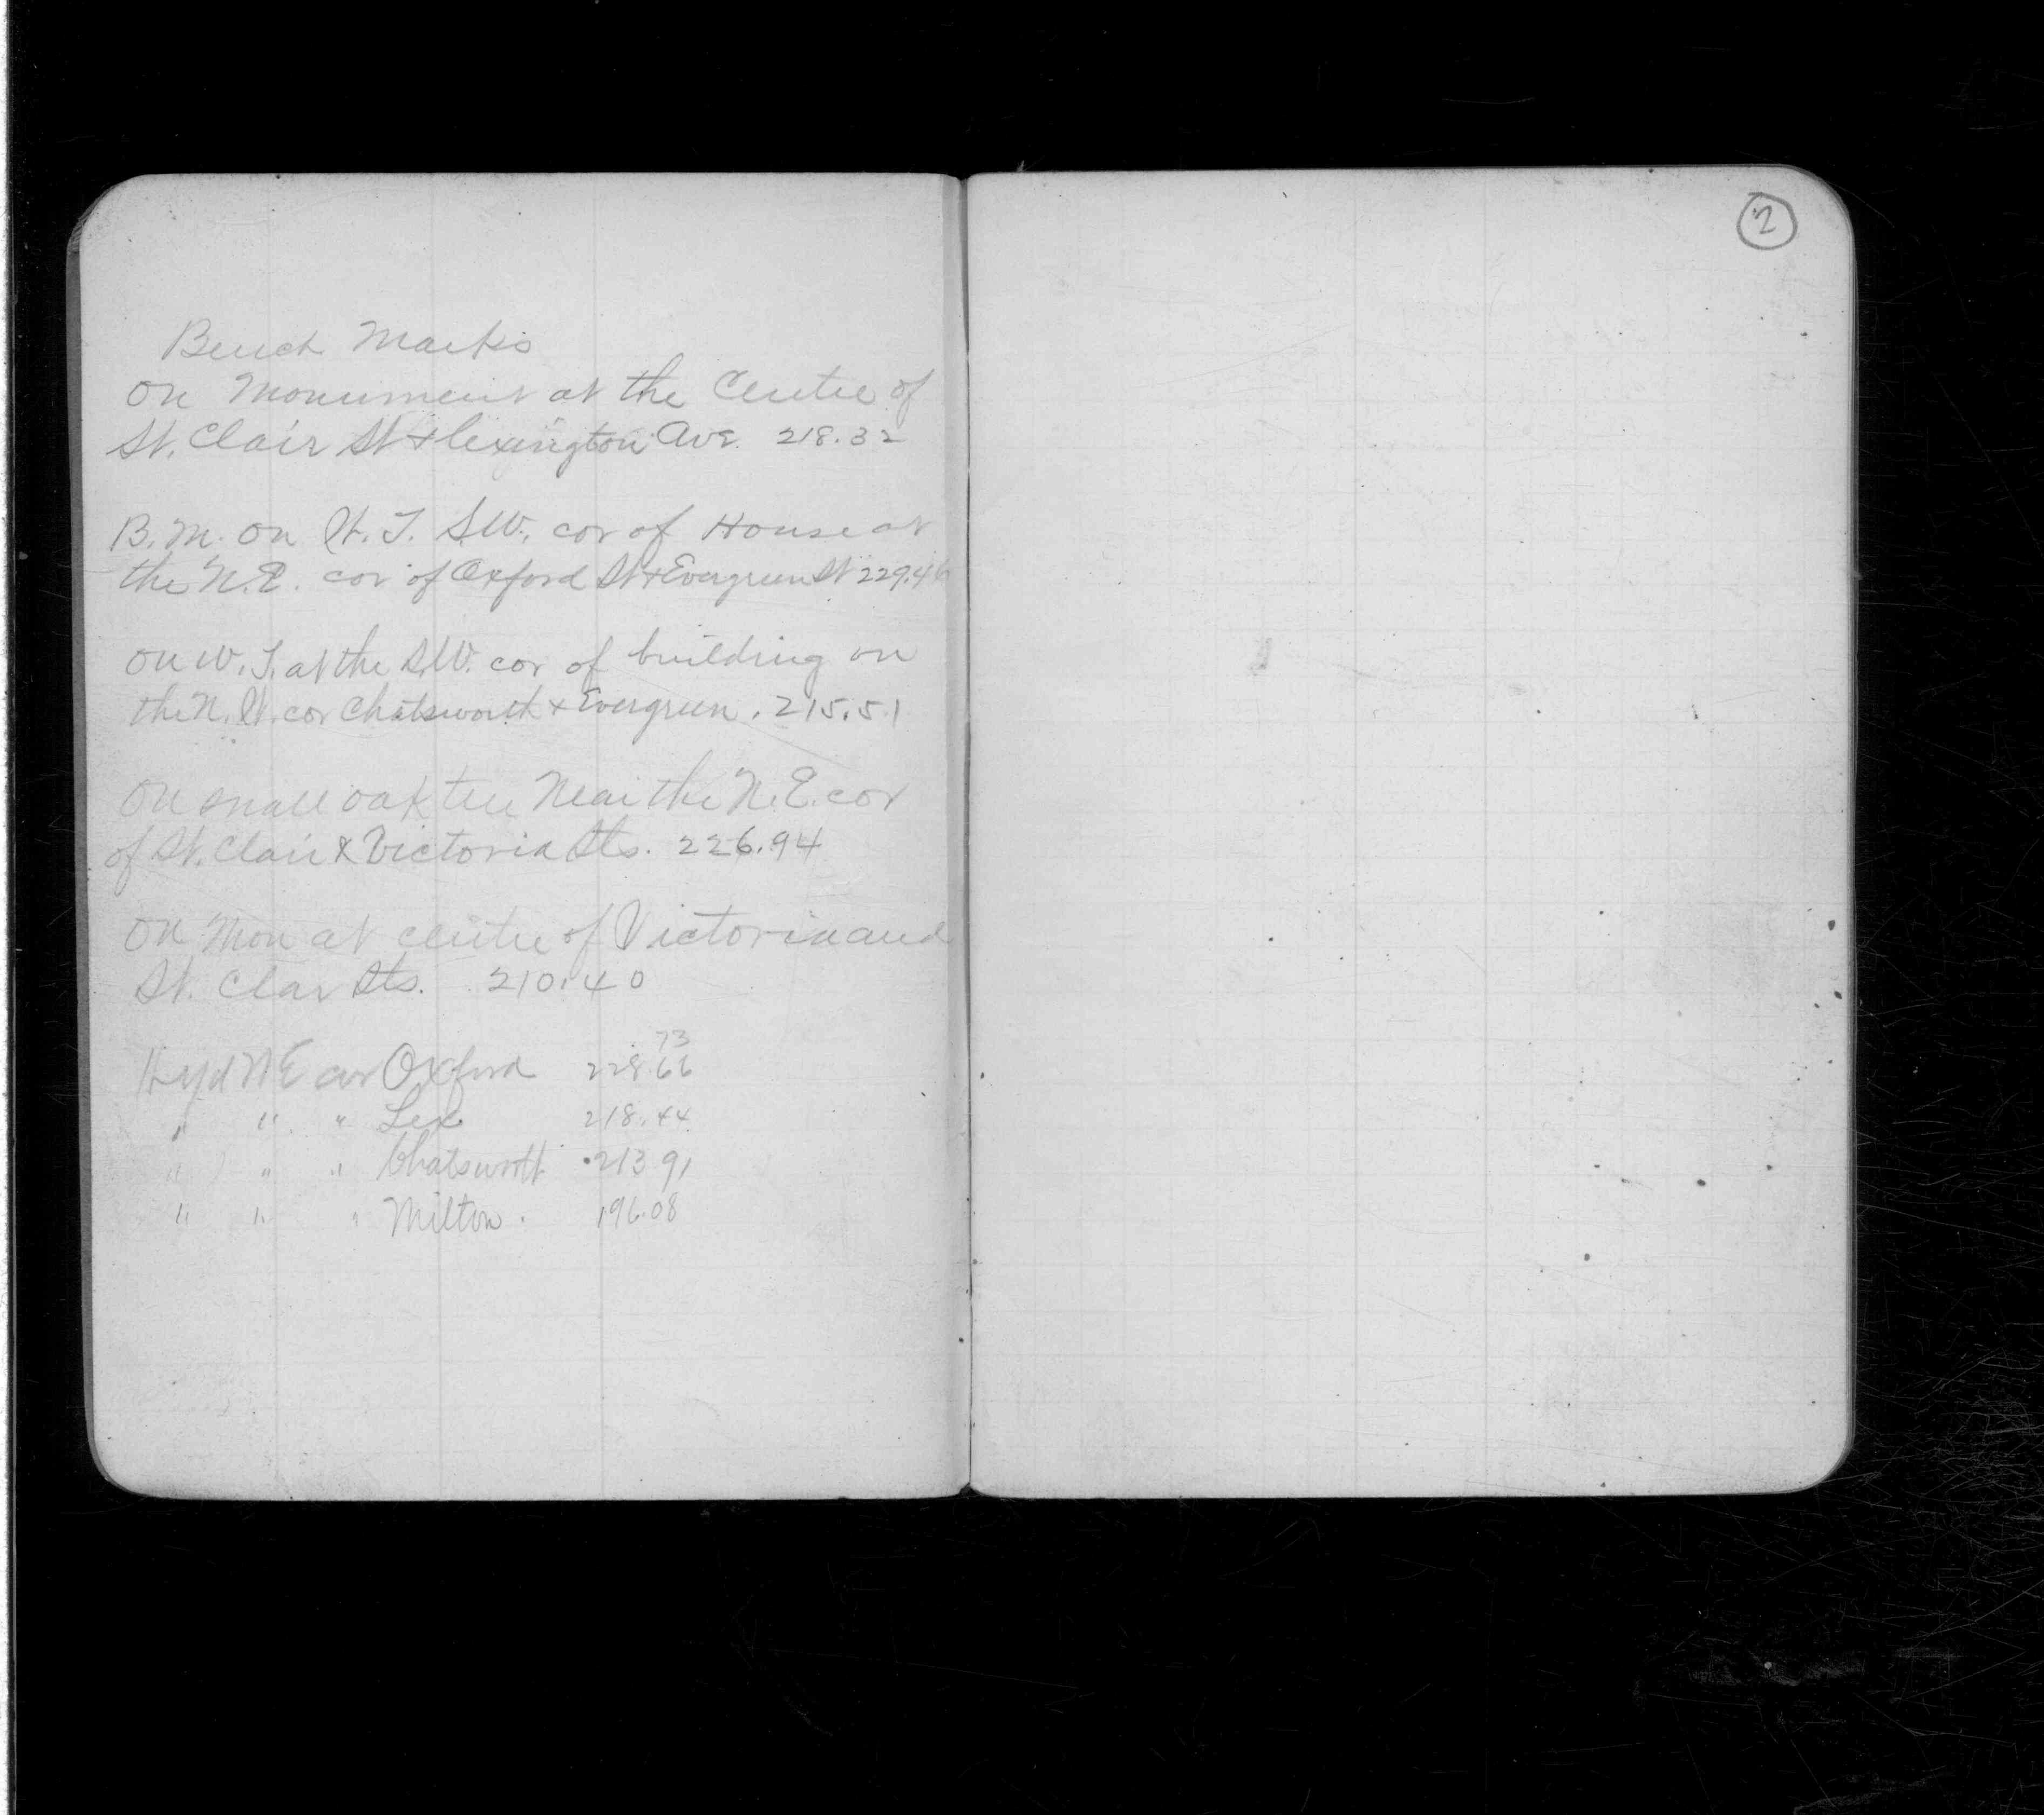 Bench Marks
On Monument at the Centre of
St. Clair St + Lexington Ave. 218.32
B.M. on W.T. S.W. cor of House at
the N.E. cor of Oxford St + Evergreen St 229.46
On W.T. at the S.W. cor of building on
the N.W. cor Chatsworth + Evergreen. 215.51
On small oak tree Near the N.E. cor
of St. Clair & Victoria Sts. 226.94
On Mon at centre of Victoria and
St. Clar Sts. 210.40
73
Hyd N E cor Oxford 228.66
" " " Lex 218.44
" " " Chatsworth 213 91
" " " Milton. 196.08
2